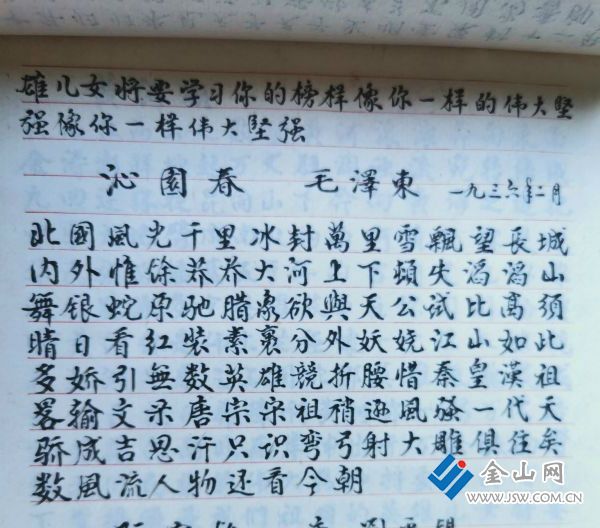 雄儿女将要学习你的榜样像你一样的伟大坚
强像你一样伟大坚强
沁園春 毛澤東 一九三六年二月
北國風光千里冰封萬里雪飄望長城
内外惟馀莽莽大河上下頓失滔滔山
舞银蛇原馳腊象欲與天公試比高須
晴日看红裝素裹分外妖娆江山如此
多娇引無数英雄競折腰惜秦皇漢祖
畧输文采唐宗宋祖稍逊風騷一代天
骄成吉思汗只识弯弓射大雕俱往矣
数風流人物还看今朝
金山网
WWW.JSW.COM.CN